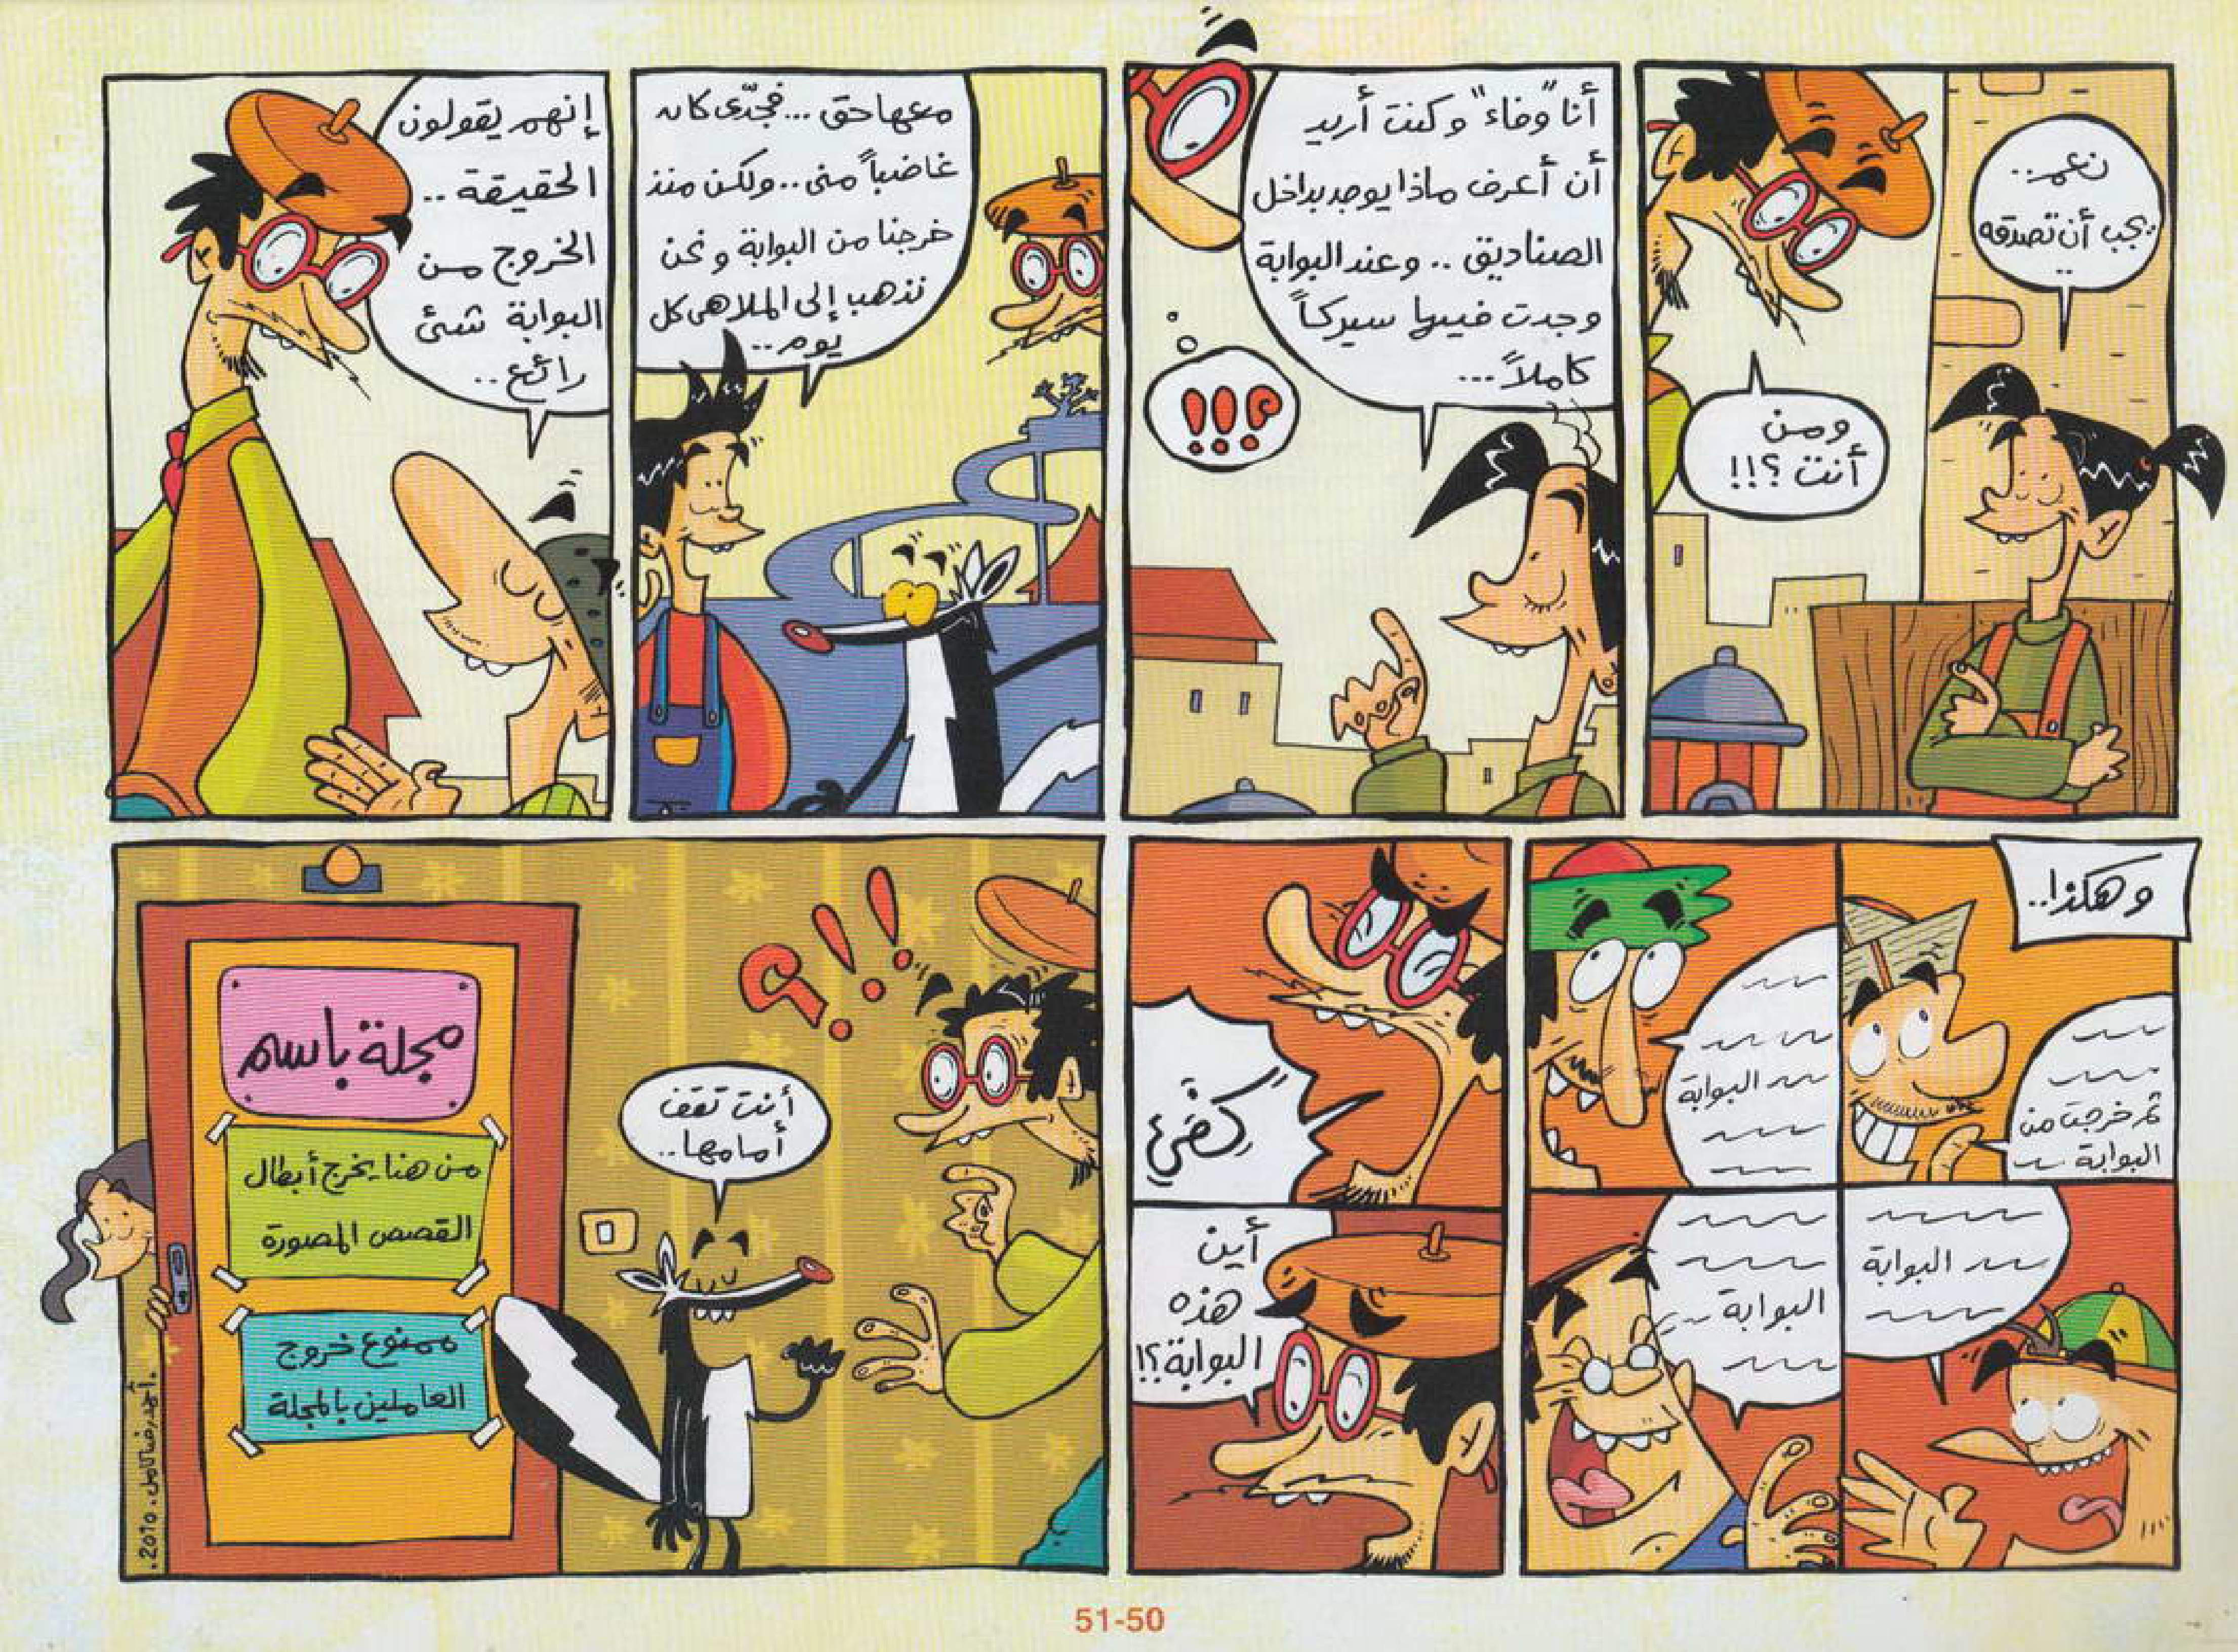 نعم..
يجب أن تصدقه
..
ومن
أنت ؟!!
أنا "وفاء" وكنت أريد
أن أعرف ماذا يوجد بداخل
الصناديق .. وعند البوابة
وجدت فيها سيركاً
كاملاً ...
؟!!
معها حق ... فجدّى كان
غاضباً منى .. ولكن منذ
خرجنا من البوابة ونحن
نذهب إلى الملاهى كل
يوم ..
إنهم يقولون
الحقيقة ..
الخروج من
البوابة شئ
رائع ..
وهكذا..
ثم خرجت من
البوابة
البوابة
البوابة
البوابة
كفى
أين
هذه
البوابة؟!
؟!!
أنت تقف
أمامها..
مجلة باسم
من هنا يخرج أبطال
القصص المصورة
ممنوع خروج
العاملين بالمجلة
أحمد رضا كامل. 2010.
51-50